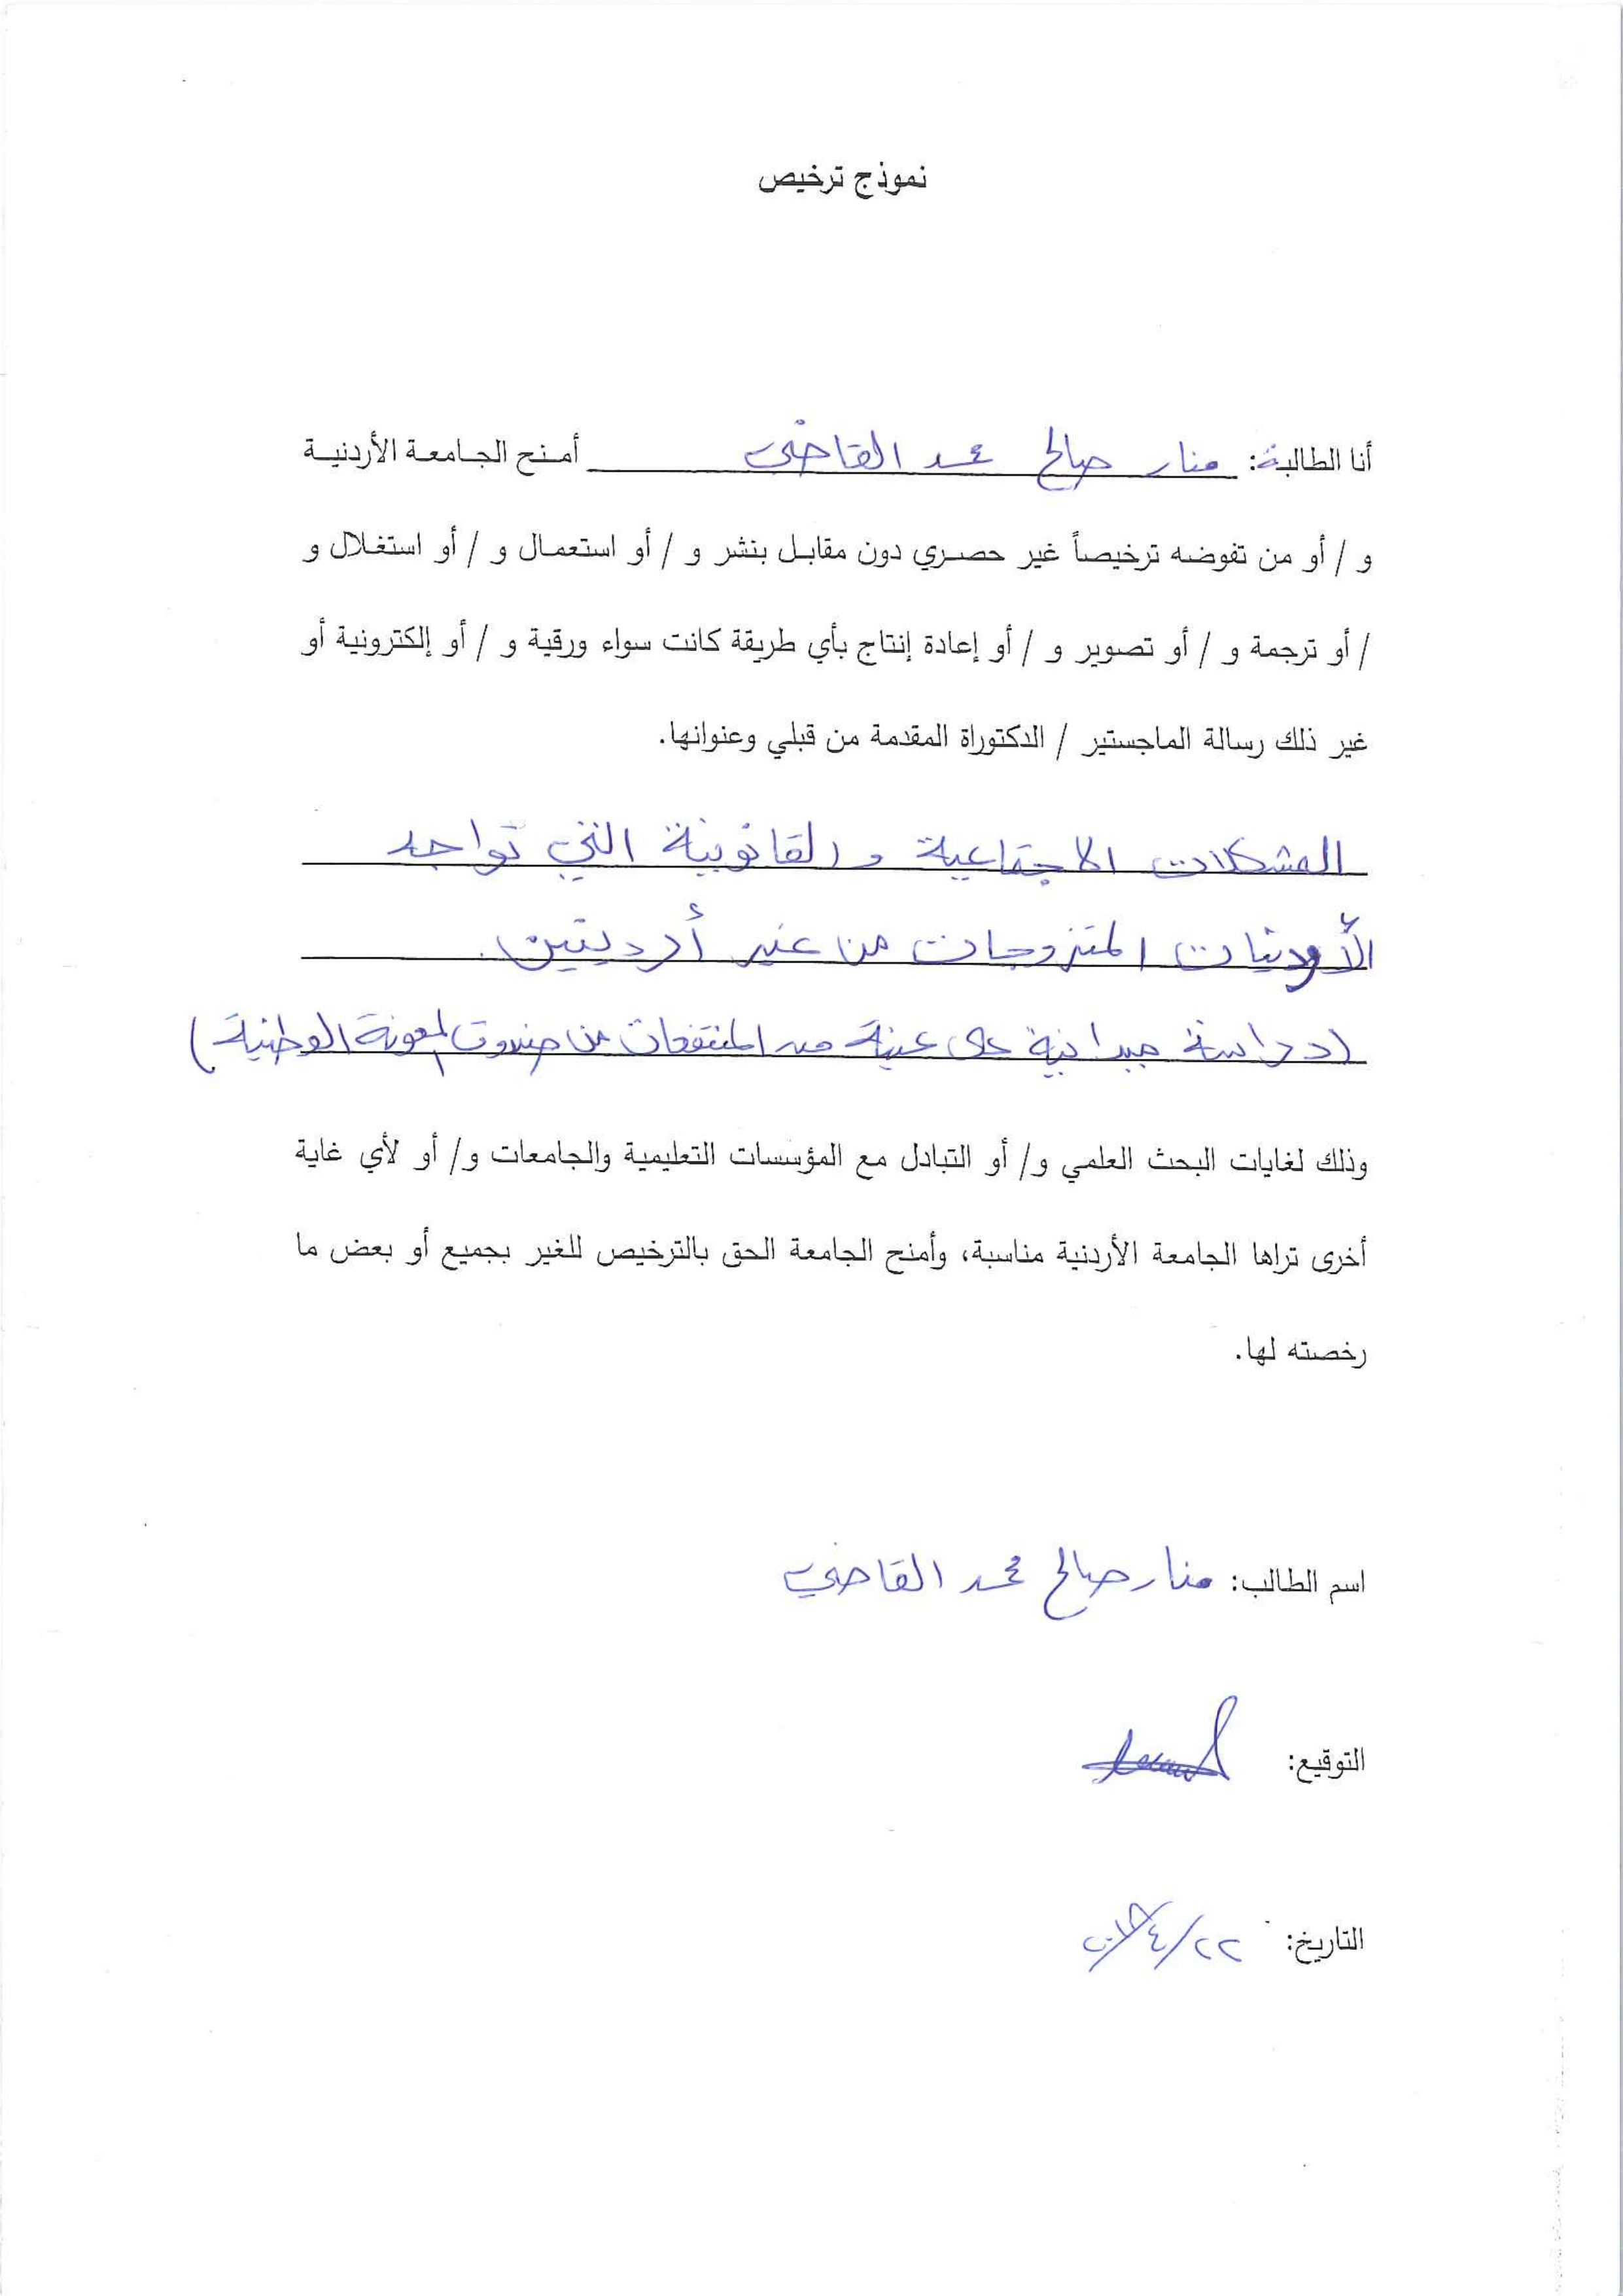 نموذج ترخيص
أنا الطالبة: منار صالح محمد القاضي أمنح الجامعة الأردنية
و / أو من تفوضه ترخيصاً غير حصري دون مقابل بنشر و / أو استعمال و / أو استغلال و
/ أو ترجمة و / أو تصوير و / أو إعادة إنتاج بأي طريقة كانت سواء ورقية و / أو إلكترونية أو
غير ذلك رسالة الماجستير / الدكتوراة المقدمة من قبلي وعنوانها.
المشكلات الاجتماعية والقانونية التي تواجه
الأردنيات المتزوجات من غير أردنيين.
(دراسة ميدانية على عينة من المنتفعات من صندوق المعونة الوطنية)
وذلك لغايات البحث العلمي و/ أو التبادل مع المؤسسات التعليمية والجامعات و/ أو لأي غاية
أخرى تراها الجامعة الأردنية مناسبة، وأمنح الجامعة الحق بالترخيص للغير بجميع أو بعض ما
رخصته لها.
اسم الطالب: منار صالح محمد القاضي
التوقيع:
التاريخ: ٢٢/٤/